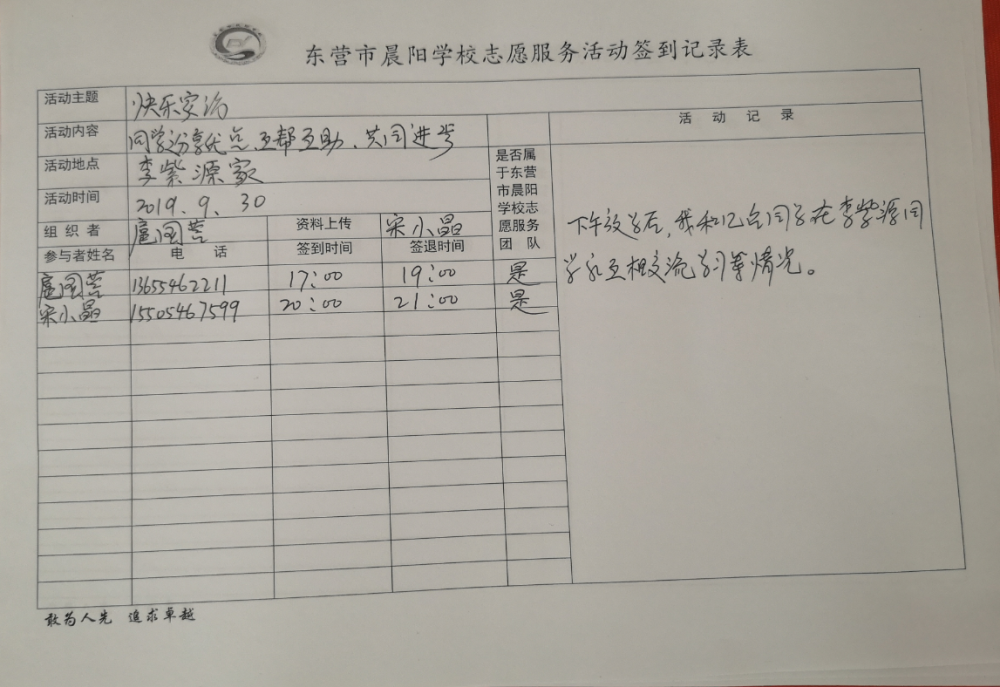 东营市晨阳学校志愿服务活动签到记录表
活动主题 快乐家访
活动内容 同学分享优点、互帮互助、共同进步
活动地点 李紫源家
活动时间 2019.9.30
组织者 扈国营 资料上传 宋小晶
参与者姓名 电话 签到时间 签退时间 是否属于东营市晨阳学校志愿服务团队
活动记录
扈国营 13655462211 17:00 19:00 是
宋小晶 15505467599 20:00 21:00 是
下午放学后,我和几位同学在李紫源同
学家互相交流学习等情况。
敢为人先 追求卓越